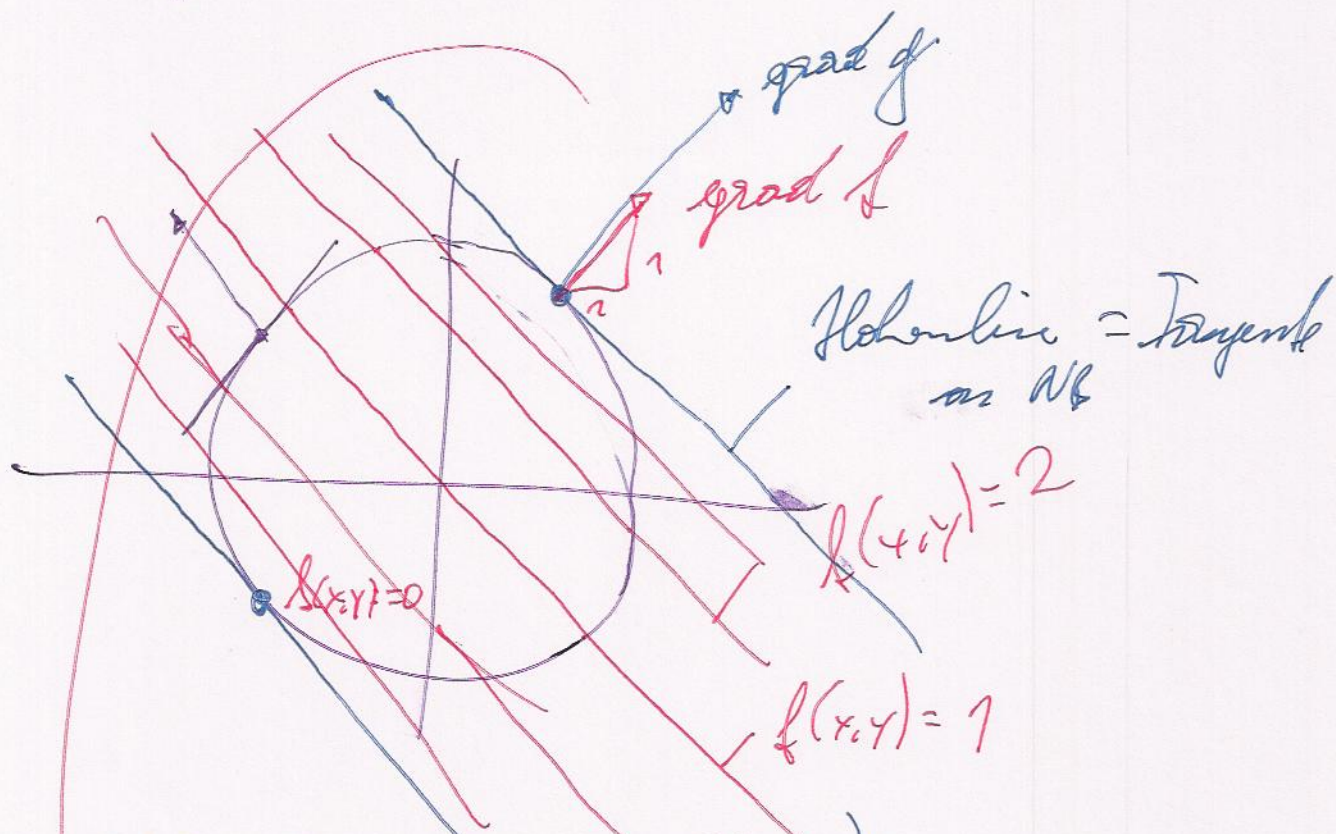 grad g
grad f
1
1
Höhenlinie = Tangente
an NB
f(x,y)=2
f(x,y)=0
f(x,y)=1